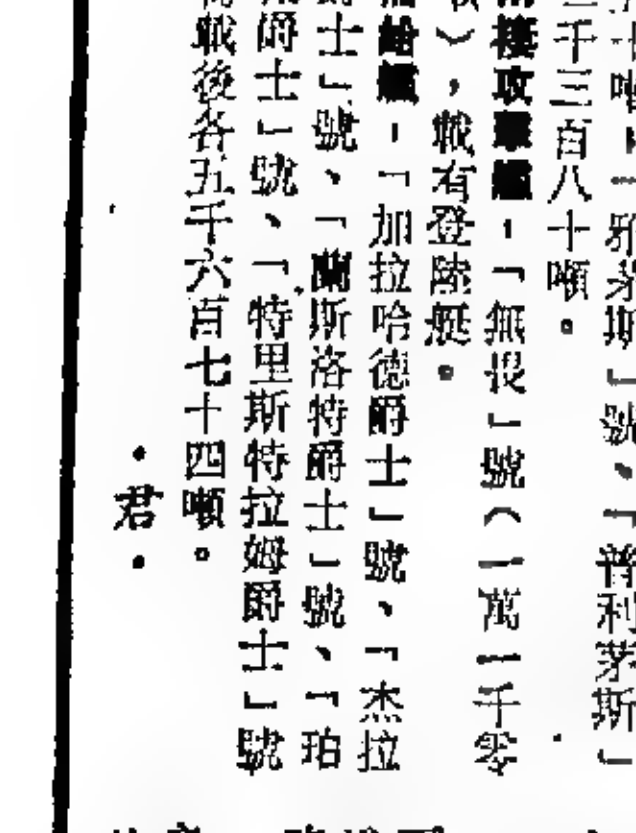 十噸、「雅茅斯」號、「普利茅斯」
千三百八十噸。
攻擊艦－「無畏」號（一萬一千零
），載有登陸艇。
給艦－「加拉哈德爵士」號、「杰拉
士」號、「蘭斯洛特爵士」號、「珀
爵士」號、「特里斯特拉姆爵士」號
載後各五千六百七十四噸。
・君・